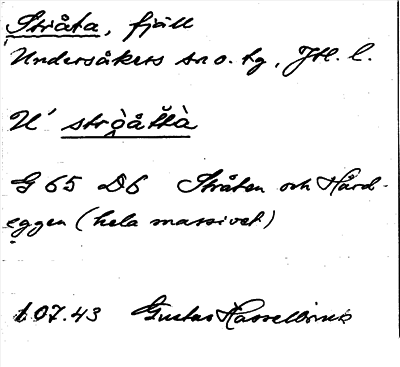 Stråta, fjäll
Undersåkers sn o. tg, Jtl. l.
U' stròå̆ttà
G 65 D6 Stråten och Hård-
eggen (hela massivet)
1 07.43 Gustav Hasselbrink